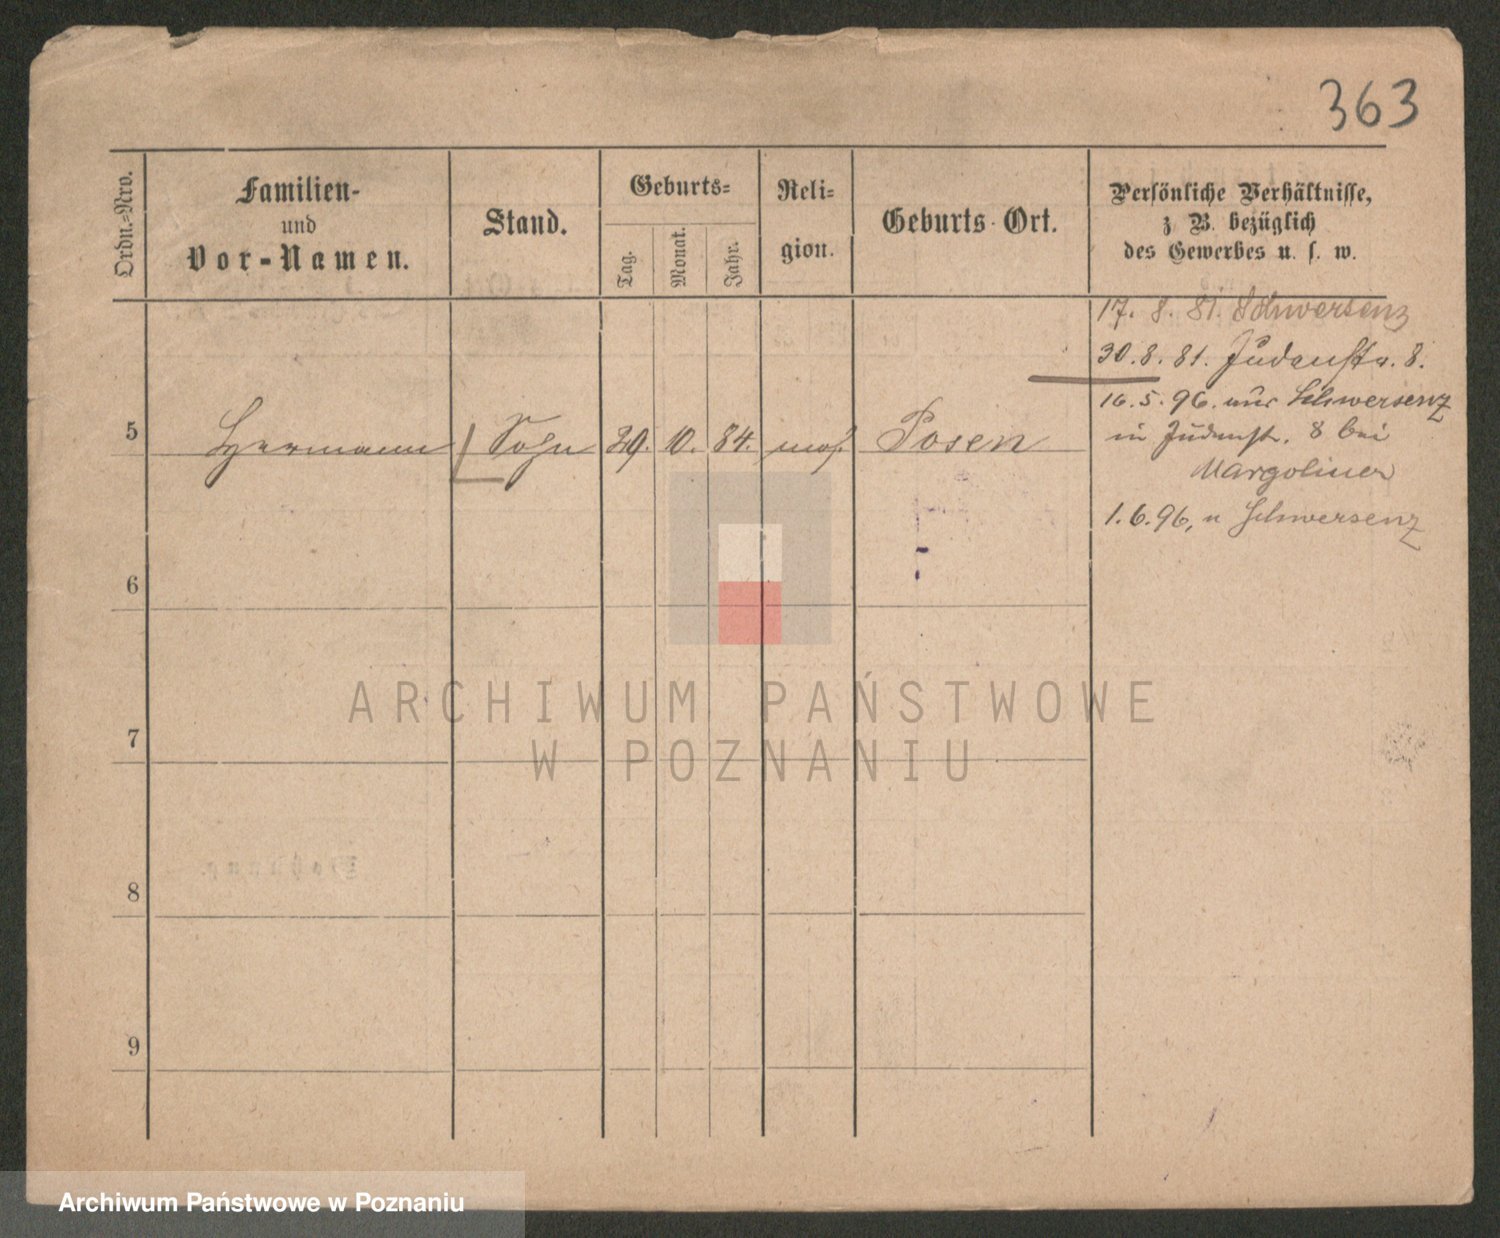 363
Ordn.-Nro.
Familien-
und
Vor-Namen.
Stand.
Geburts-
Tag.
Monat.
Jahr.
Reli-
gion.
Geburts-Ort.
Persönliche Verhältnisse,
z B. bezüglich
des Gewerbes u. s. w.
17. 8. 81. Schwersenz
30. 8. 81. Judenstr. 8.
16. 5. 96. aus Schwersenz
in Judenstr. 8 bei
Margoliner
1. 6. 96, n Schwersenz
5 Hermann Sohn 10. 84. mos. Posen
6
7
8
9
ARCHIWUM PAŃSTWOWE
W POZNANIU
Archiwum Państwowe w Poznaniu